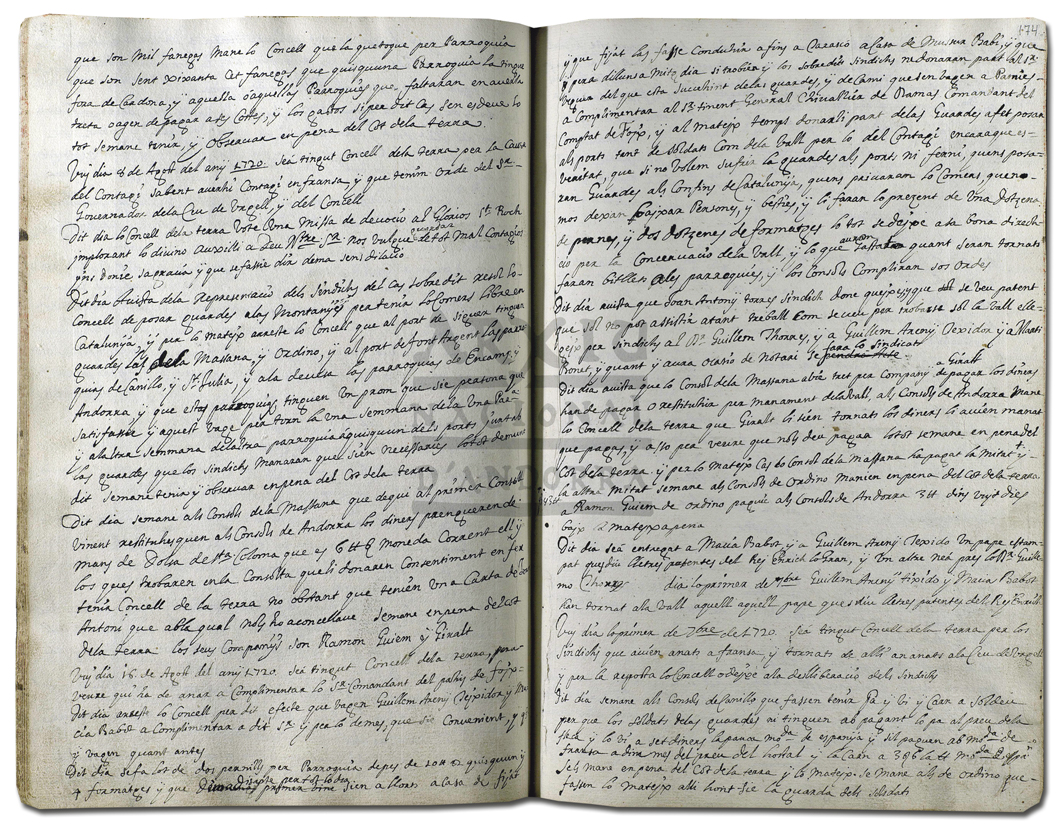 que son Mil faneges Mane lo Concell que la que toque per Parroquia
que son sent xixanta Cet fanegas que quisquuna Parroquia la tingue
fora de Cardona, y aquella o aquellas Parroquies que faltaran en averla
treta ogen de pagar a les Cottes, y los gastos si per dit Cas sen esdeve lo
tot semane tenir, y observar en pena del Cot dela terra
Vuy dia 8 de Agost del any 1720 Sea tingut Concell dela terra per la Causa
del Contagi Sabent averhi Contagi en fransa y que tenim orde del Sr
Governador dela Ceu de Urgell, y del Concell
Dit dia lo Concell de la terra Vote Una Missa de devocio al Glorios St Roch
jmplorant lo divino auxilli a Deu Ntre Sr nos vulgue guardar de tot mal Contagios
y ques fassie dir dema sens dilacio
Dit dia A vista dela Representacio dels Sindichs del Cas sobredit resol lo
Concell de posar guardes a las Montanyes per tenir lo Comers libre en
Catalunya, y per lo mateix arreste lo Concell que al port de Siguer tinguen
guardes las dela Massana y Ordino, y al port de Font Argent las parro
quias de Canillo, y St Julia, y ala devesa las parroquias de Encamp y
Andorra y que estas parroquias tinguen Un prom que sie persona que
satisfassie y aquest vage per torn la Una Semmana dela Una Par-
y ala tra Semmana dela tra parroquia a quisquun dels ports guarta
las guardes que los Sindichs Manaran que sien necessaries lo tot demunt
dit Semane tenir y observar en pena del Cot dela terra
Dit dia semane als Consols dela Massana que degui al primer Consell
vinent restituhesquen als Consols de Andorra los diners prengueren de
mans de Dolsa de Sta Coloma que es 6 ll 8 Moneda Corrent ell y
los ques trobaren en la Consolta que li donaren Consentiment en fer
tenir Concell de la terra no obstant que tenien Una Carta de
Antoni que abla qual no hy ho aconcellave Semane en pena del Cot
dela terra los seus Companys son Ramon Guiem y Giralt
Vuy dia 16 de Agost del any 1720 Sea tingut Concell dela terra, per a
veure qui ha de anar a Complimentar lo Sr Comandant del pahis de foix
Dit dia arreste lo Concell per dit efecte que vagen Guillem Areny Teixidor y Ma
cia Babot a Complimentar a dit Sr y per lo demes, que sie Convenient, y q
y vagen quant antes
Dit dia se fa lo tot de dos pernills per Parroquia de pes de quisquun y
4 formatges y que sien a llorts a Casa de
174
y que fiat las fasse Conduhir a fins a Tarasco a Casa de Mussur Babi, y que
pera dilluns a Mitg dia si trobien y los sobredits Sindichs ne donaran part al Sr
Veguer del que esta succehint delas guardes, y de Cami que sen vagen a Pamies
a Complimentar al Sr tinent General Chivallier de Ramas Comandant del
Comptat de Foix, y al mateix temps donarli part delas Guardes a fet posar
als ports tant de soldats Com dela Vall per lo del Contagi encara que es-
veritat, que si no volem sufrir la guardes als ports ni ferni, quens posa-
ran Guardes als Confins de Catalunya, quens privaram lo Comers, que no
mos dexaran baixar Personas, y bestiar, y lo faran lo prezent de Una Dotzena
de pernes, y dos dotzenes de formatges lo tot se deixe a la bona direc-
cio per la Concervacio de la Vall, y lo que auran fet quant seran tornats
faran bitllets a les parroquies, y los Consols Compliran sos Ordes
Dit dia avista que Joan Antony torres Sindich done queixes, y que se veu patent
que sol no pot assistir a tant treball Com se veu per trobarse sol la Vall elle-
geix per Sindichs al Dr Guillem Thorres, y a Guillem Areny Texidor y a Marti
Bonet, y quant y aura ocasio de Notari se fara lo Sindicat
Dit dia avista que lo Consol dela Massana abre tret per Company a Giralt de pagar los diners
han de pagar o restituhir per manament dela Vall, als Consols de Andorra Mane
lo Concell dela terra que Giralt li sien tornats los diners lo avien manat
que pagas, y asso per veure que noy deu pagar lo tot semane en pena del
Cot dela terra, y per lo mateix Cas do Consol dela Massana ha pagat la Mitat y-
la altra Mitat semane als Consols de Ordino Manien en pena del Cot dela terra
a Ramon Guiem de ordino paguie als Consols de Andorra 3 ll dins vuyt dies
baix la mateixa pena
Dit dia sea entregat a Macia Babot, y a Guillem Areny Texido Un pape estam-
pat ques diu lletres patentes del Rey Enrich lo gran, y Un altre nea pres lo Dr Guille
mo Thorres dia lo primer de 7bre Guillem Areny tixido y Macia Babot
han tornat ala Vall aquell aquell pape ques diu lletres patentes del Rey Enrich
Vuy dia lo primer de 7bre de 1720. Sea tingut Concell dela terra per los
Sindichs que avien anats a fransa, y tornats de alli an anats ala Ceu de Urgell
y per la resposta lo Concell o deixe ala desliberacio dels Sindichs
Dit dia semane als Consols de Canillo que fassen tenir Pa y Vi y Carn a Soldeu
per que los soldats delas guardes ni tinguen ab pagant lo pa al preu dela
fleca y lo vi a set diners la Moda de espanya, y sil paguen ab Moda de
fransa a dine mes del preu del hostal y la Carn a Moda de Espanya
Sels mane en pena del Cot dela terra, y lo mateix se mane als de ordino que
fassen lo mateix alli hont sie la guarda dels soldats
ARXIU
NACIONAL
D'ANDORRA